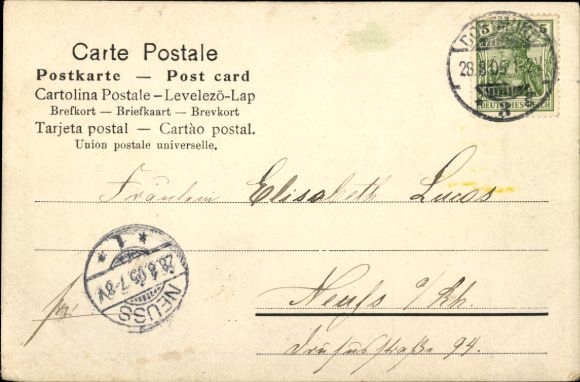 Carte Postale
Postkarte — Post card
Cartolina Postale – Levelezö-Lap
Brefkort — Briefkaart — Brevkort
Tarjeta postal — Cartào postal.
Union postale universelle.
28.8.05
5
DEUTSCHES REICH
Fräulein Elisabeth Lucas
1
28.8.05. 7-8V
NEUSS
Neuss a/Rh.
94.